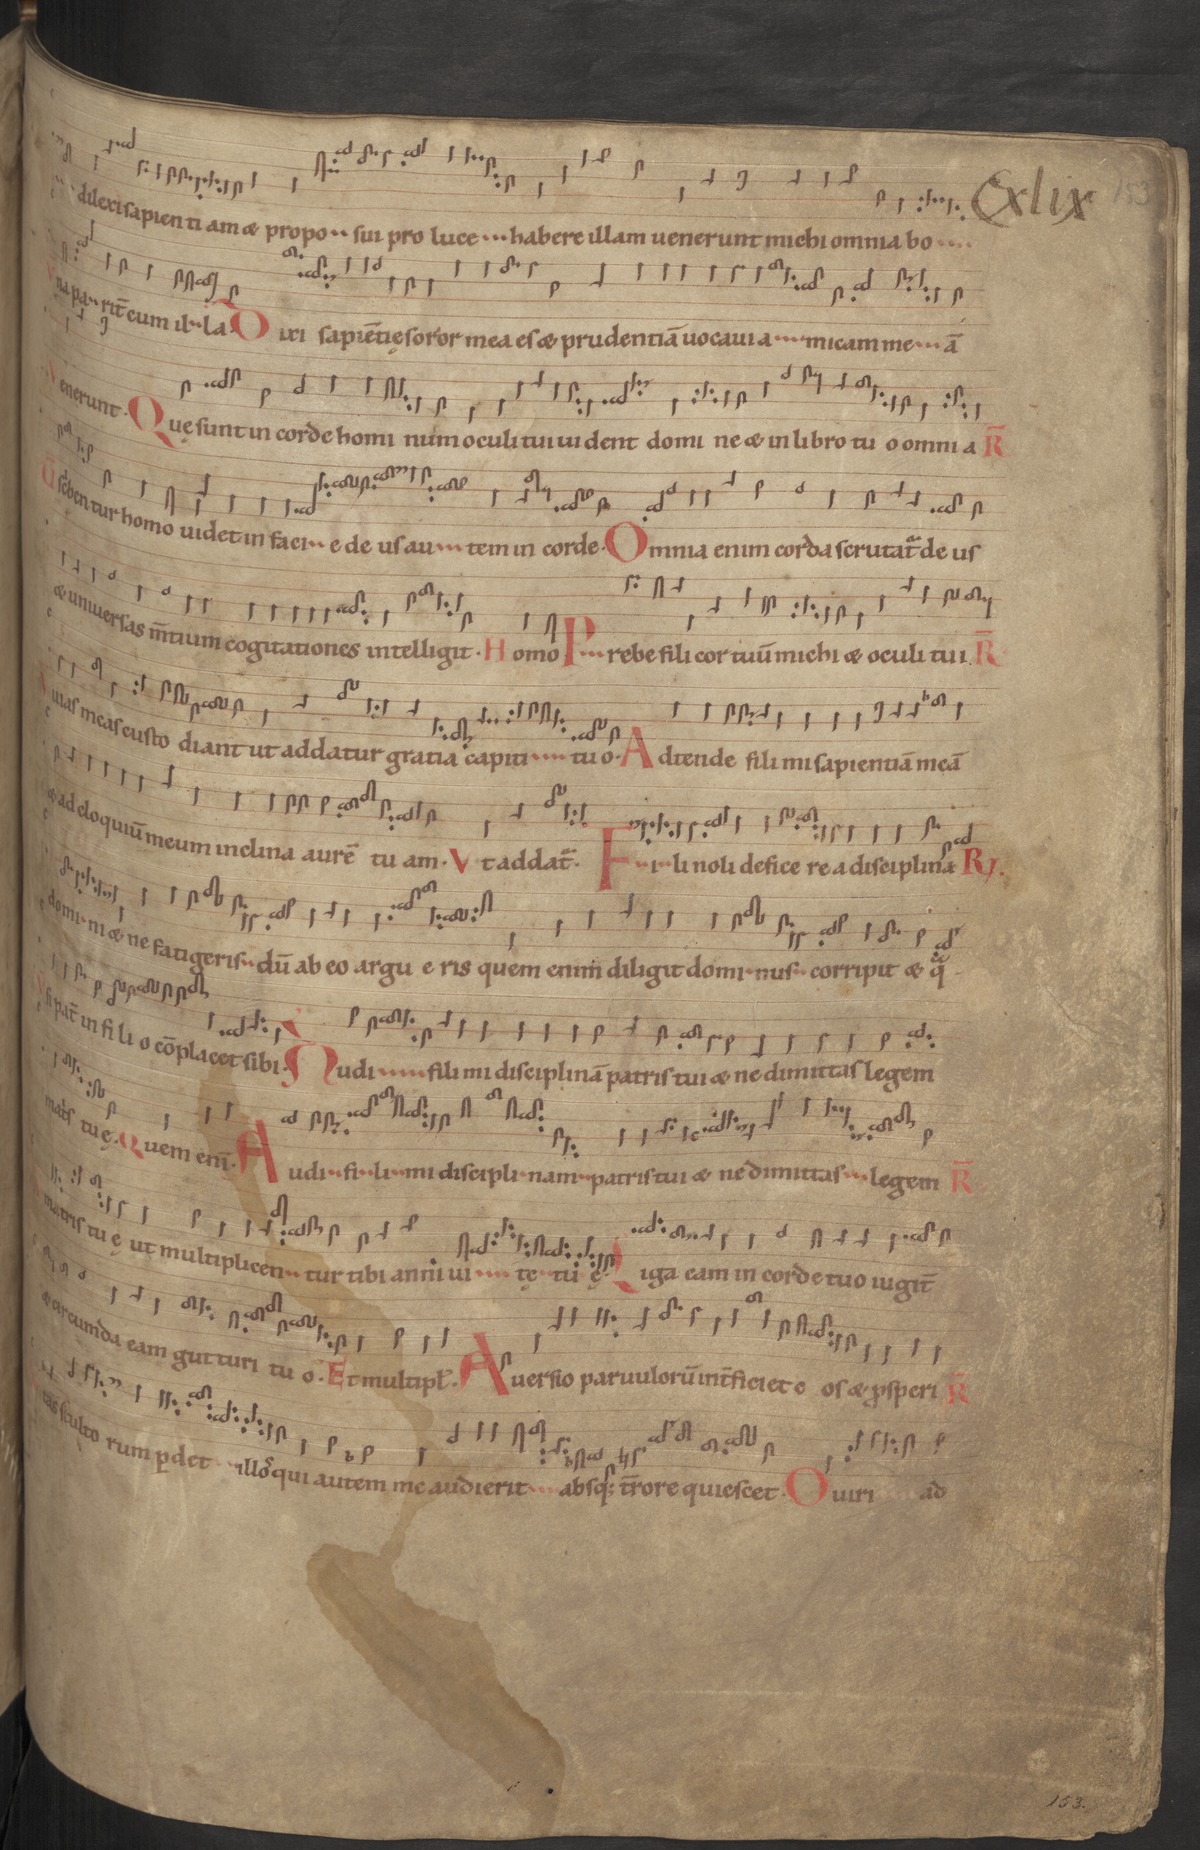 Cxlix 153
dilexi sapien ti am & propo sui pro luce habere illam uenerunt michi omnia bo
na pa rit̄ cum il la. Dixi sapiēntię soror mea es & prudentiā uocaui a micam me ā
enerunt. Quę sunt in corde homi num oculi tui uident domi ne & in libro tu o omni a R̄
scben tur homo uidet in faci e de us au tem in corde. Omnia enim corda scrutat̄ de us
& uniuersas m̄tium cogitationes intelligit. Homo Prebe fili cor tuū michi & oculi tui R̄
uias meas custo diant ut addatur gratia capiti tuo. Adtende fili mi sapientiā meā
& ad eloquiū meum inclina aurē tu am. Vt addat̄. Fi li noli defice re a disciplina R.
domi ni & ne fatigeris dū ab eo argu e ris quem enim diligit domi nus corripit & q̄
si pat̄ in fi li o cōplacet sibi. Audi fili mi disciplinā patris tui & ne dimittas legem
mat̄s tuę. Quem enī. Audi fi li mi discipli nam patris tui & ne dimittas legem R̄
matris tu ę ut multiplicen tur tibi anni ui tę tu ę. Liga eam in corde tuo iugit̄
& circumda eam gutturi tu o. Et multipl̄. Auersio paruulorū int̄ficiet e os & ꝓsperi R̄
tas stulto rum ꝑdet illos qui autem me audierit absq; t̄rore quiescet. O uiri ad
153.